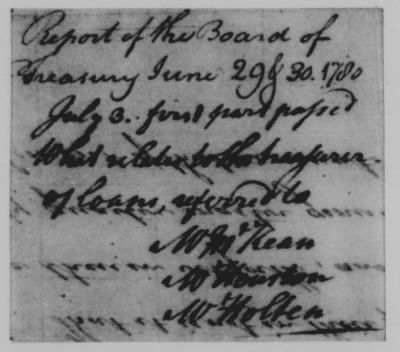 Report of the Board of
Treasury June 29 & 30. 1780
July 3. first part passed
What relates to the treasurer
of loans, referred to
Mr McKean
Mr Houston
Mr Holten